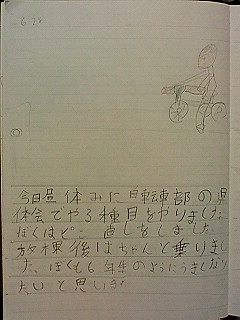 6.28
今日昼休みに自転車部の車
体会でやる種目をやりました。
ぼくはピー 直しをしました
放課後はちゃんと乗りまし
た。ぼくも6年生のようにうまくなり
たいと思います